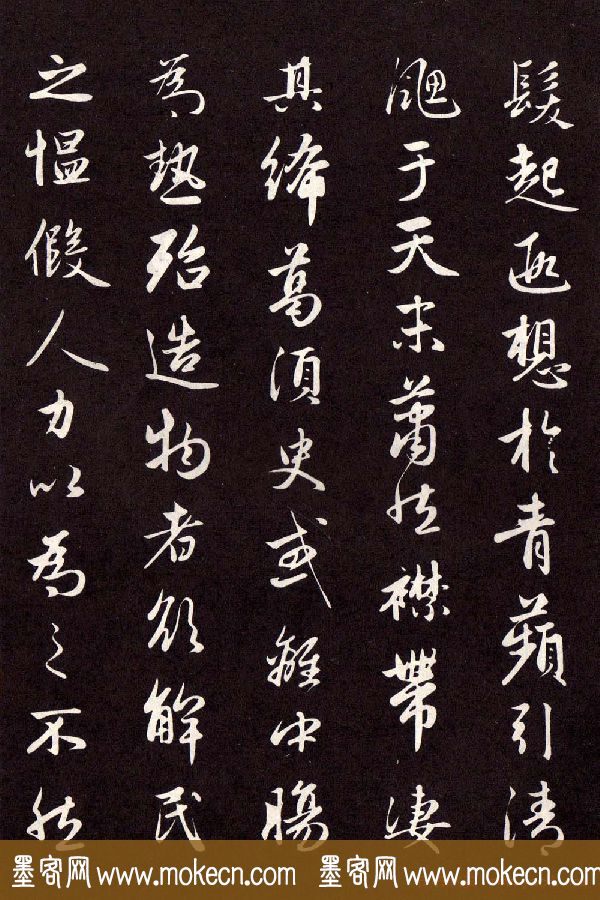 髮起遐想於青蘋引清
颸于天末蕭然襟帶淒
其絺葛須臾或離中腸
為熱殆造物者欲解民
之慍假人力以為之不然
墨客网 www.mokecn.com 墨客网 www.mokecn.com